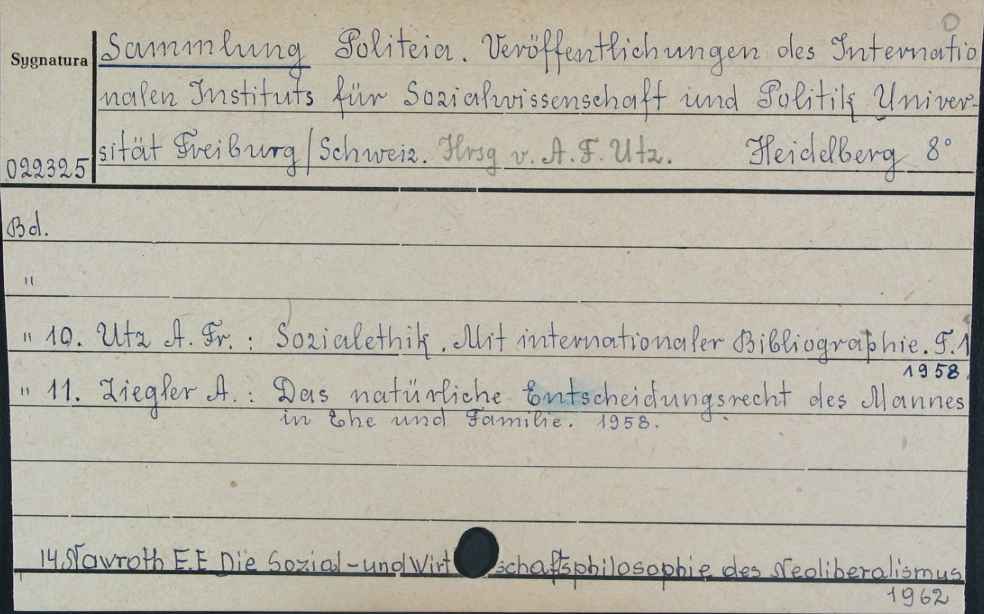 Sygnatura
022325
Sammlung Politeia. Veröffentlichungen des Internatio
nalen Instituts für Sozialwissenschaft und Politik Univer-
sität Freiburg/Schweiz. Hrsg v. A. F. Utz. Heidelberg 8°
Bd.
"
" 10. Utz A. Fr.: Sozialethik. Mit internationaler Bibliographie. T.1
1958.
" 11. Ziegler A.: Das natürliche Entscheidungsrecht des Mannes
in Ehe und Familie. 1958.
14 Nawroth E.E Die Sozial-und Wirtschaftsphilosophie des Neoliberalismus
1962